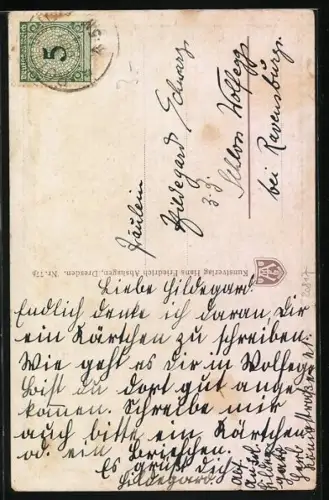 5
Fräulein
Hildegard Schwarz
z. Z.
Schloss Wolfegg
bei Ravensburg.
Kunstverlag Hans Friedrich Abshagen, Dresden.
Liebe Hildegard!
Endlich denke ich daran Dir
ein Kärtchen zu schreiben.
Wie geht es Dir in Wolfegg
Bist du dort gut ange-
kommen. Schreibe mir
auch bitte ein Kärtchen
od. ein Briefchen.
Es grüßt dich
Hildegard